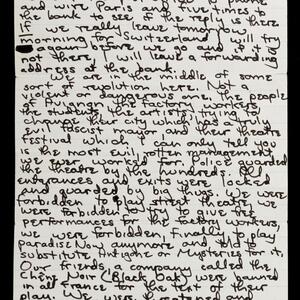 and wire Paris and give times to
the bank to see if the reply is there
If we really leave tomorrow
morning for Switzerland will try
again before we go and if it is
not there, I will leave a forwarding
address at the bank.
We are in the middle of some
sort of revolution here. Not a
violent or dangerous one, the people
of Avignon, the factory workers,
the students, the artists trying to
change their city which had a very
evil fascist mayor and their theatre
festival which I can only tell you
is the most evil, rotten management
we ever worked for. Police guarded
the theatre by the hundreds. All
entrances and exits were locked
and guarded by big thugs. We were
forbidden to play street theatre, we
were forbidden to try to give free
performances for the factory workers,
we were forbidden, finally, to play
Paradise Now anymore and told to
substitute Antigone or Mysteries for it.
Our friends, a company called the
Chêne Noir (Black Oak) were banned
in all France for the text of their
play. We were threatened and